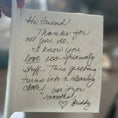 Hi Friend!
Thanks for
all you do, &
I know you
love eco-friendly
stuff - This greeting
turns into a cleaning
cloth! use over
Buddy